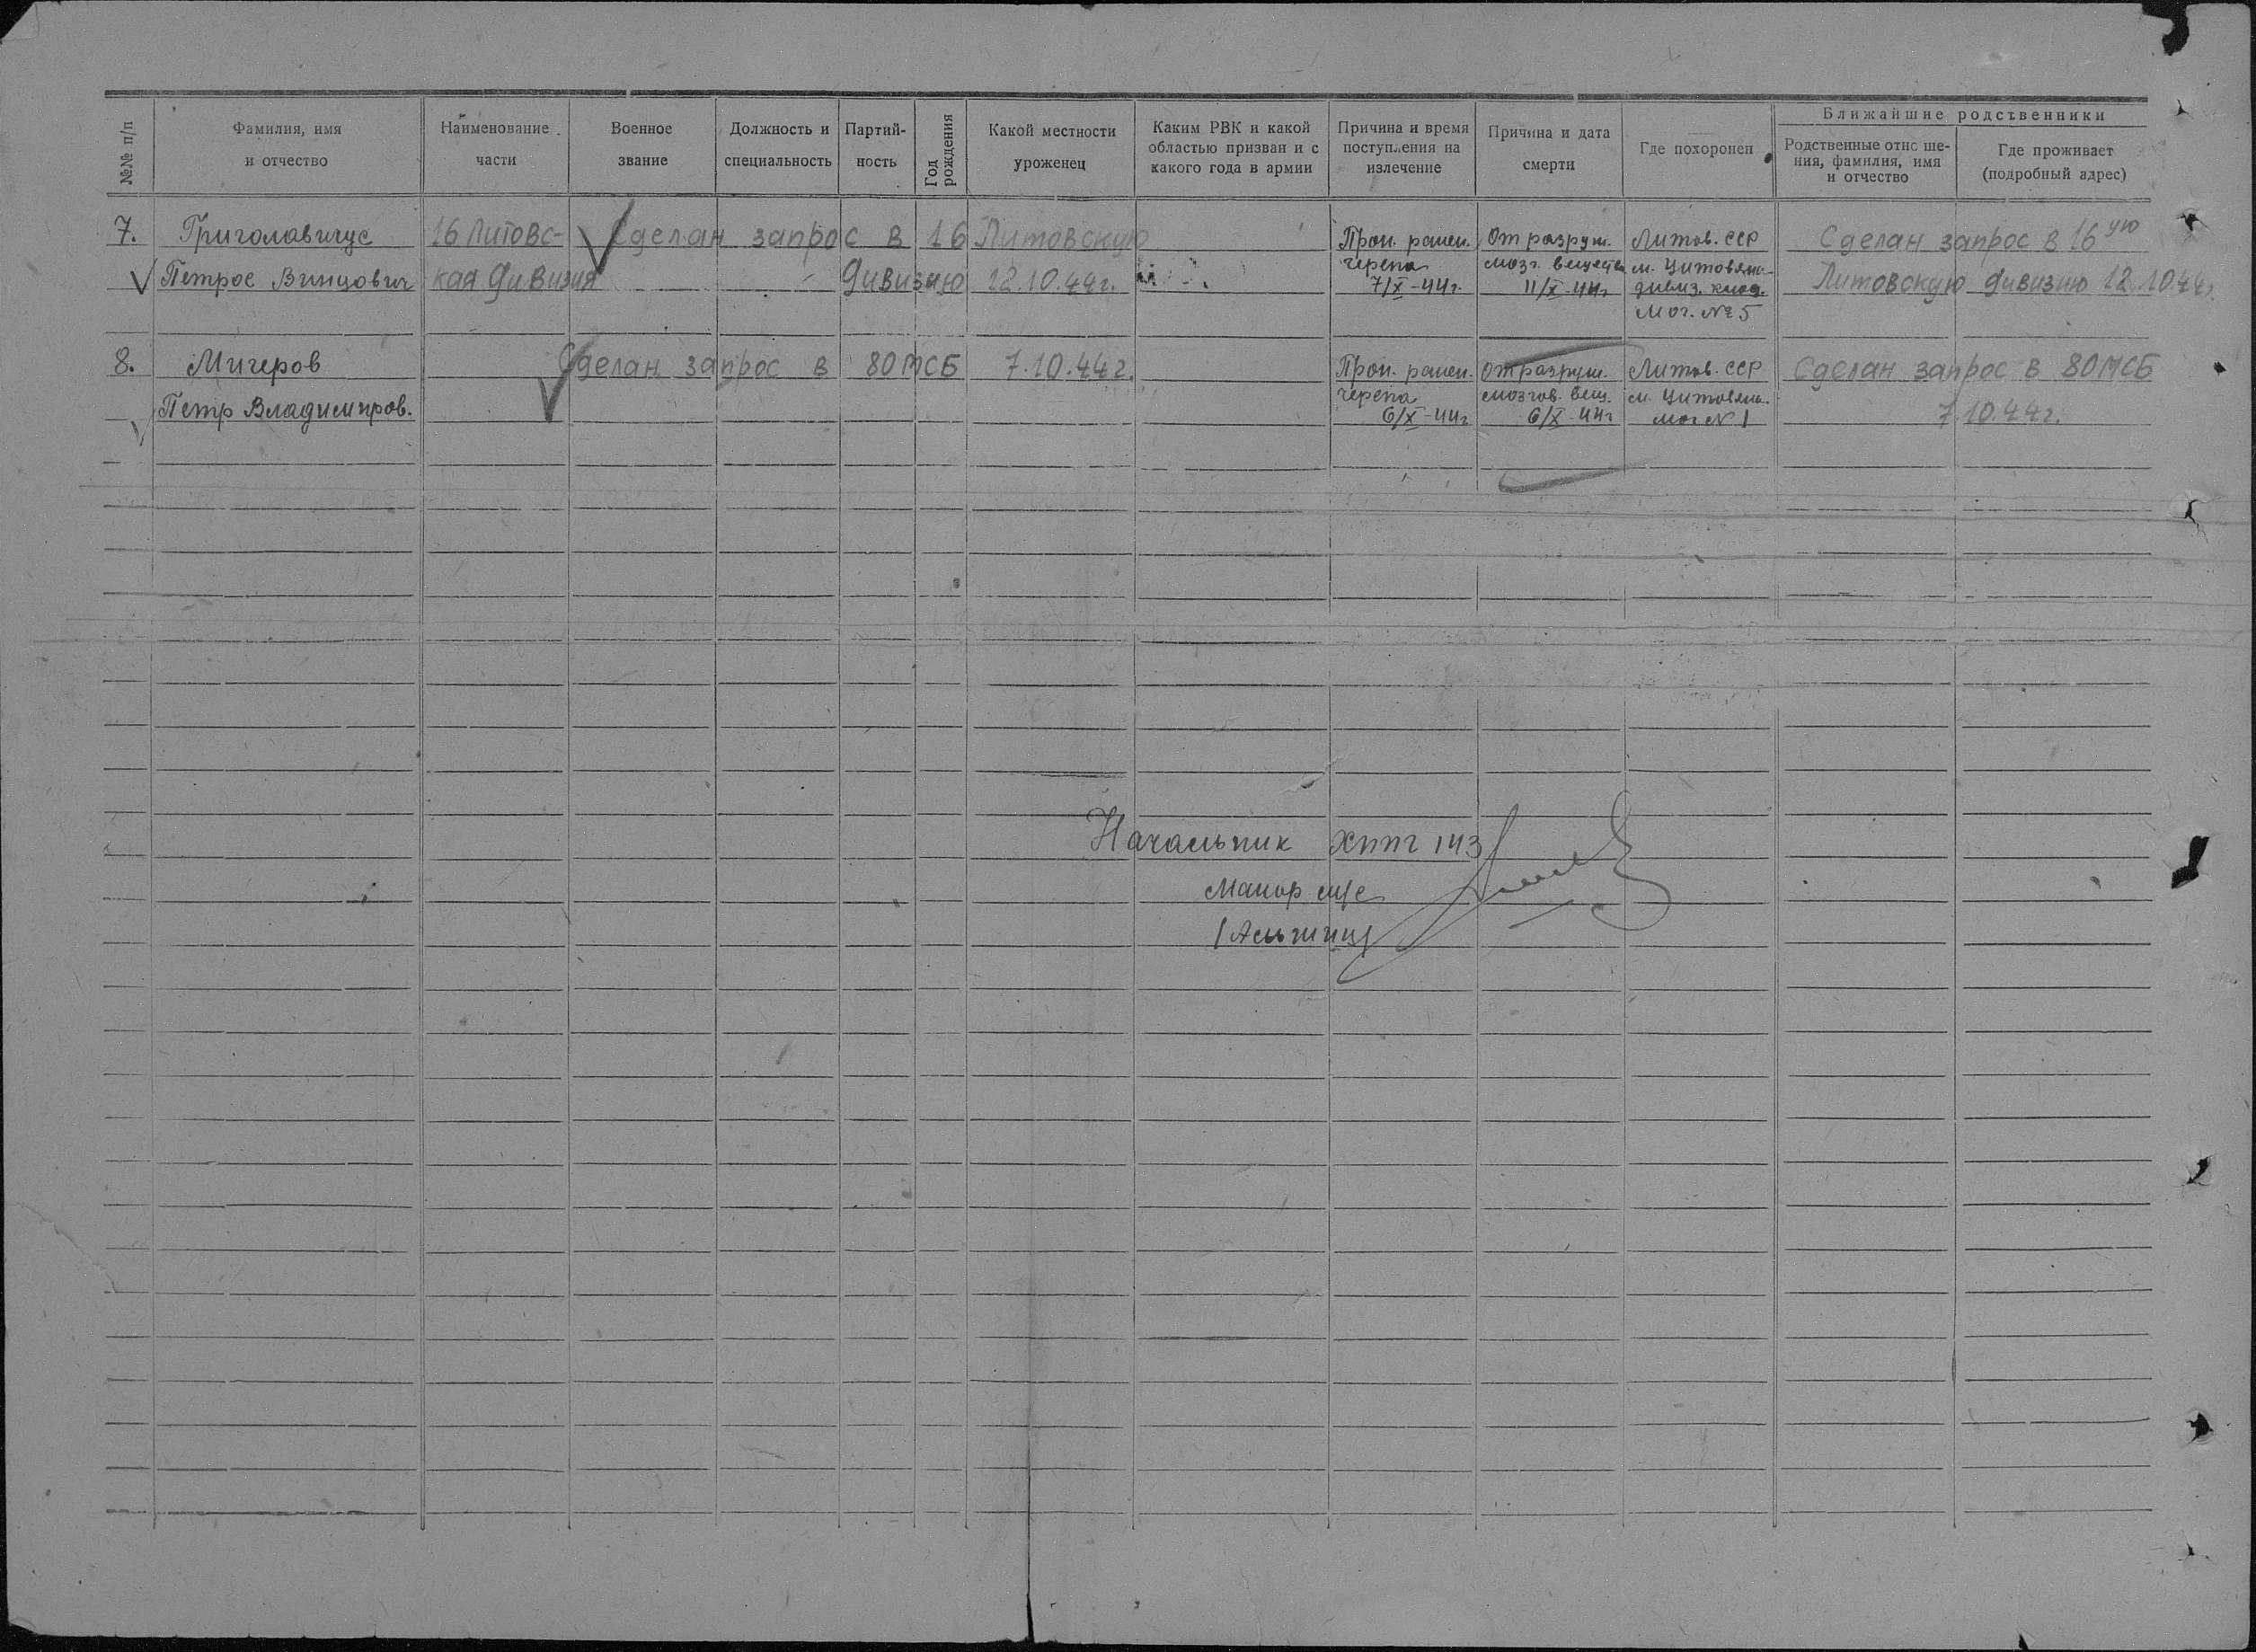 №№ п/п
Фамилия, имя
и отчество
Наименование
части
Военное
звание
Должность и
специальность
Партий-
ность
Год
рождения
Какой местности
уроженец
Каким РВК и какой
областью призван и с
какого года в армии
Причина и время
поступления на
излечение
Причина и дата
смерти
Где похоронен
Ближайшие родственники
Родственные отно ше-
ния, фамилия, имя
и отчество
Где проживает
(подробный адрес)
7.
Григолавичус
Петрос Винцович
16 Литовс-
кая дивизия
Сделан запрос в 16 Литовскую
дивизию 12.10.44г.
Прон. ранен.
черепа
7/X-44г.
От разруш.
мозг. вещества
11/X-44г
Литов. ССР
м. Цитовяны
дивиз. клад.
Мог. №5
Сделан запрос в 16ую
Литовскую дивизию 12.10.44г.
8.
Мичеров
Петр Владимиров.
Сделан запрос в 80 МСБ 7.10.44г.
Прон. ранен.
черепа
6/X-44г
От разруш.
мозгов. вещ.
6/X-44г
Литов. ССР
м. Цитовяны.
мог № 1
Сделан запрос в 80 МСБ
7.10.44г.
Начальник ХППГ 143
Майор м/с